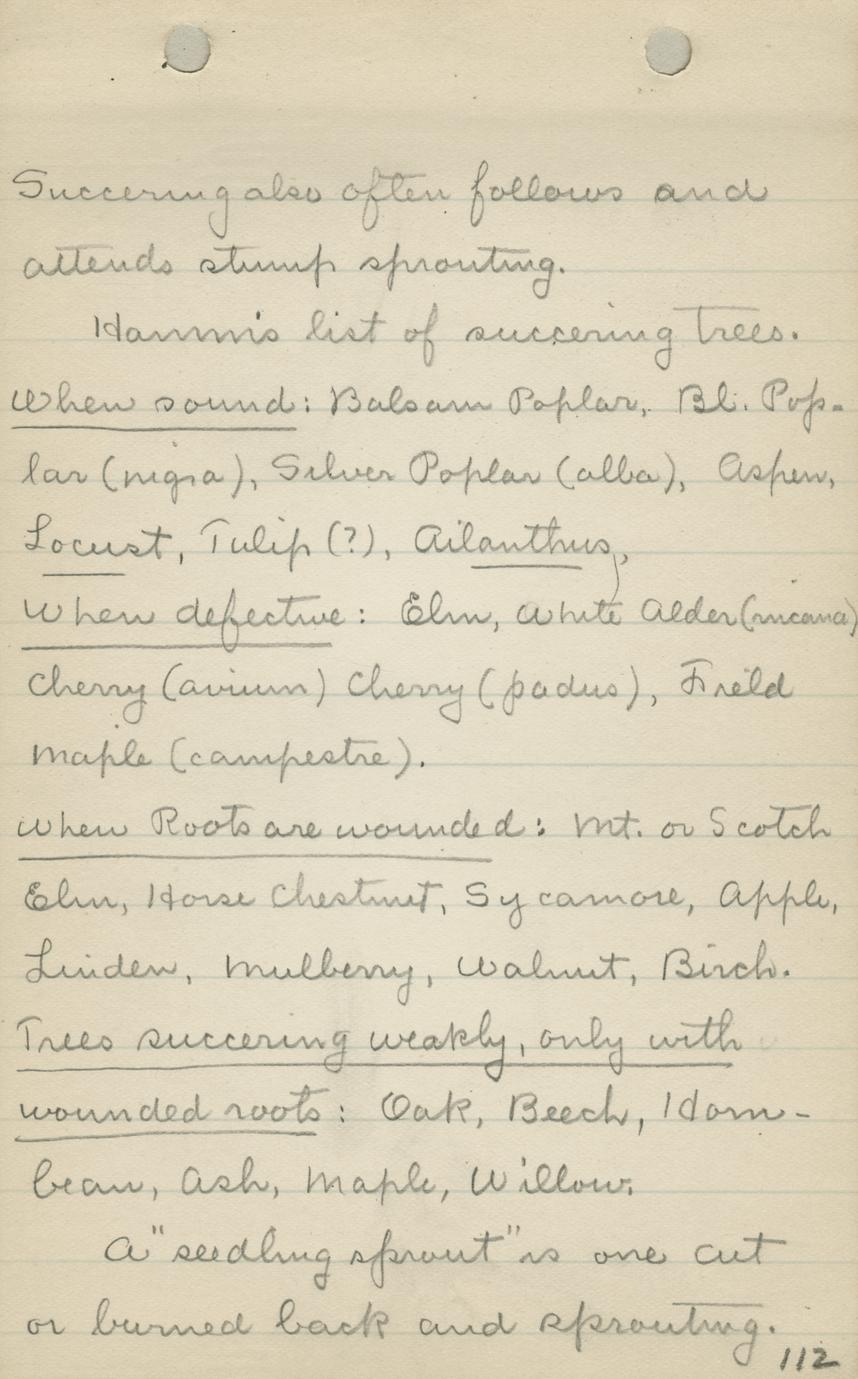 Succering also often follows and
attends stump sprouting.
Hamm's list of succering trees.
When sound: Balsam Poplar, Bl. Pop-
lar (nigra), Silver Poplar (alba), Aspen,
Locust, Tulip (?), Ailanthus,
When defective: Elm, White Alder (incana)
Cherry (avium) Cherry (padus), Field
Maple (campestre).
When Roots are wounded: Mt. or Scotch
Elm, Horse Chestnut, Sycamore, Apple,
Linden, Mulberry, Walnut, Birch.
Trees succering weakly, only with
wounded roots: Oak, Beech, Horn-
beam, Ash, Maple, Willow.
A "seedling sprout" is one cut
or burned back and sprouting.
112